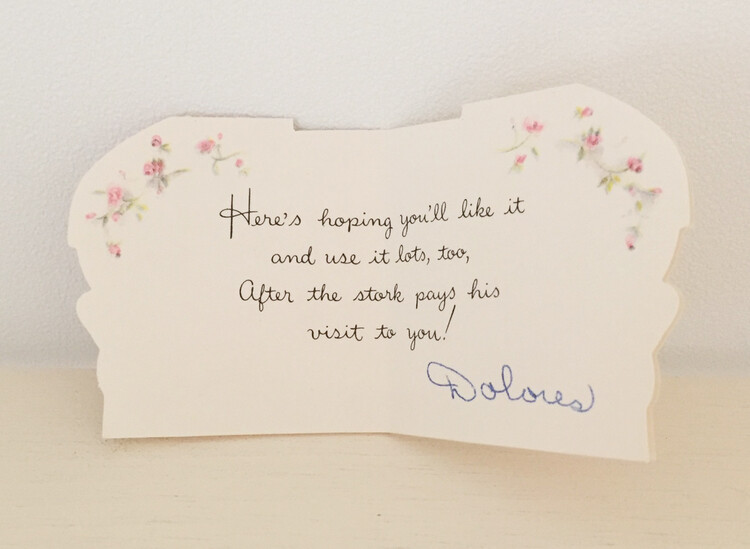 Here's hoping you'll like it
and use it lots, too,
After the stork pays his
visit to you!
Dolores